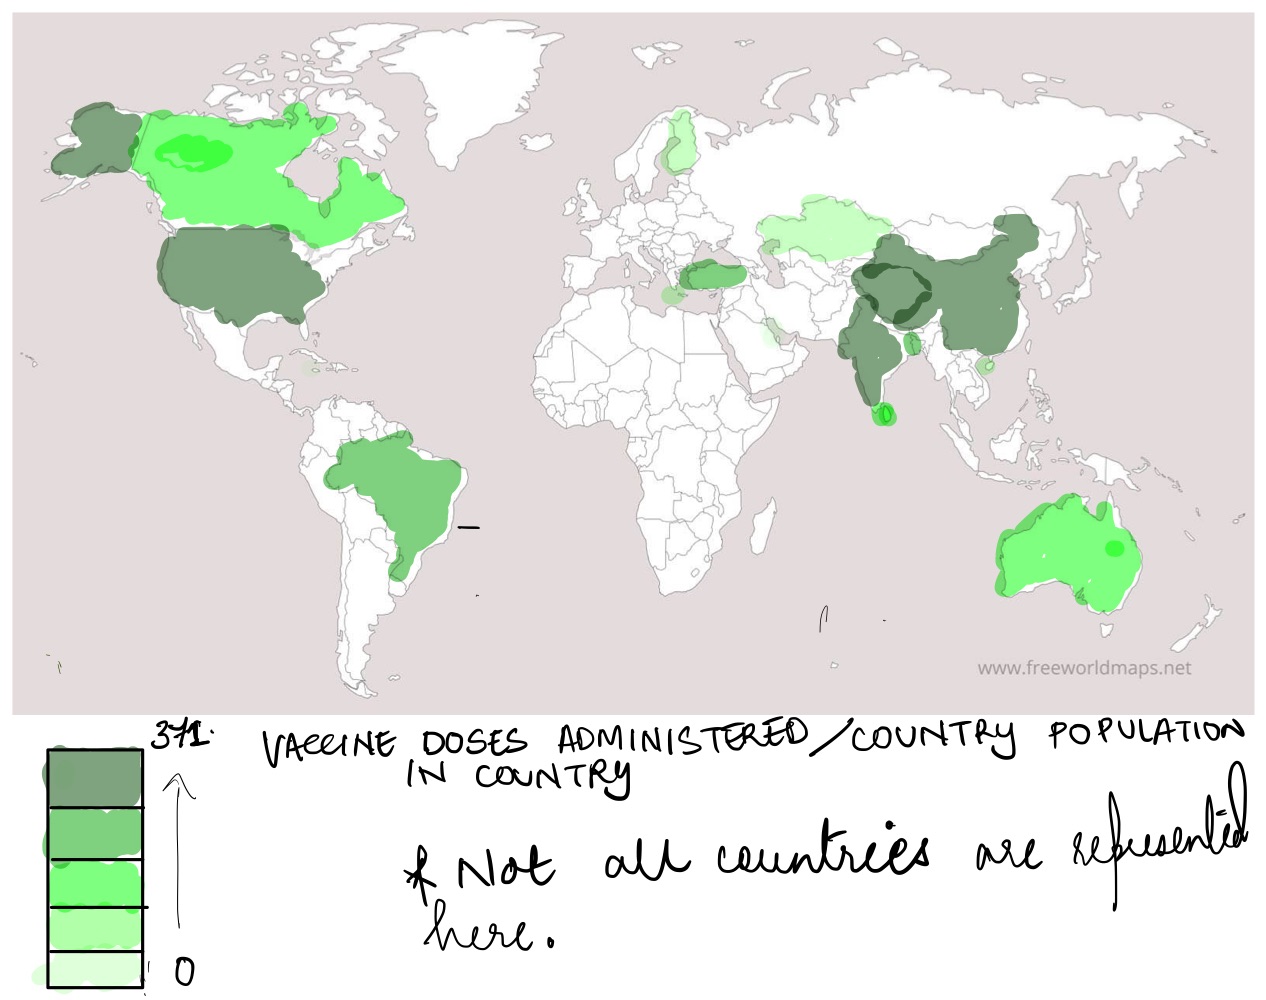 www.freeworldmaps.net
371.
VACCINE DOSES ADMINISTERED/COUNTRY POPULATION
IN COUNTRY
* Not all countries are represented
here.
0